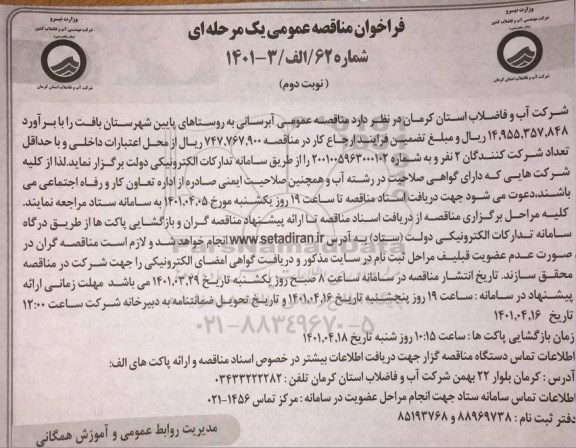 وزارت نیرو
شرکت مهندسی آب و فاضلاب کشور
شرکت آب و فاضلاب استان کرمان
فراخوان مناقصه عمومی یک مرحله ای
شماره ۶۲/الف/۳-۱۴۰۱
(نوبت دوم)
وزارت نیرو
شرکت مهندسی آب و فاضلاب کشور
شرکت آب و فاضلاب استان کرمان
شرکت آب و فاضلاب استان کرمان در نظر دارد مناقصه عمومی آبرسانی به روستاهای پایین شهرستان بافت را با برآورد
۱۴,۹۵۵,۳۵۷,۸۴۸ ریال و مبلغ تضمین فرایند ارجاع کار در مناقصه ۷۴۷,۷۶۷,۹۰۰ ریال از محل اعتبارات داخلی و با حداقل
تعداد شرکت کنندگان ۲ نفر و به شماره ۲۰۰۱۰۰۵۹۶۳۰۰۰۱۰۲ را از طریق سامانه تدارکات الکترونیکی دولت برگزار نماید.لذا از کلیه
شرکت هایی که دارای گواهی صلاحیت در رشته آب و همچنین صلاحیت ایمنی صادره از اداره تعاون کار و رفاه اجتماعی می
باشند،دعوت می شود جهت دریافت اسناد مناقصه تا ساعت ۱۹ روز یکشنبه مورخ ۱۴۰۱.۰۴.۰۵ به سامانه ستاد مراجعه نمایند.
کلیه مراحل برگزاری مناقصه از دریافت اسناد مناقصه تا ارائه پیشنهاد مناقصه گران و بازگشایی پاکت ها از طریق درگاه
سامانه تدارکات الکترونیکی دولت (ستاد) به آدرس www.setadiran.ir انجام خواهد شد و لازم است مناقصه گران در
صورت عدم عضویت قبلی،مراحل ثبت نام در سایت مذکور و دریافت گواهی امضای الکترونیکی را جهت شرکت در مناقصه
محقق سازند. تاریخ انتشار مناقصه در سامانه ساعت ۸ صبح روز یکشنبه تاریخ ۱۴۰۱.۰۳.۲۹ می باشد مهلت زمانی ارائه
پیشنهاد در سامانه : ساعت ۱۹ روز پنجشنبه تاریخ ۱۴۰۱.۰۴.۱۶ و تاریخ تحویل ضمانتنامه به دبیرخانه شرکت ساعت ۱۲:۰۰
تاریخ ۱۴۰۱.۰۴.۱۶
۰۲۱-۸۸۳۴۹۶۷۰-۵
زمان بازگشایی پاکت ها : ساعت ۱۰:۱۵ روز شنبه تاریخ ۱۴۰۱.۰۴.۱۸
اطلاعات تماس دستگاه مناقصه گزار جهت دریافت اطلاعات بیشتر در خصوص اسناد مناقصه و ارائه پاکت های الف:
آدرس : کرمان بلوار ۲۲ بهمن شرکت آب و فاضلاب استان کرمان تلفن : ۰۳۴۳۳۲۲۲۲۸۲
اطلاعات تماس سامانه ستاد جهت انجام مراحل عضویت در سامانه : مرکز تماس ۱۴۵۶-۰۲۱
دفتر ثبت نام : ۸۸۹۶۹۷۳۸ و ۸۵۱۹۳۷۶۸
مدیریت روابط عمومی و آموزش همگانی